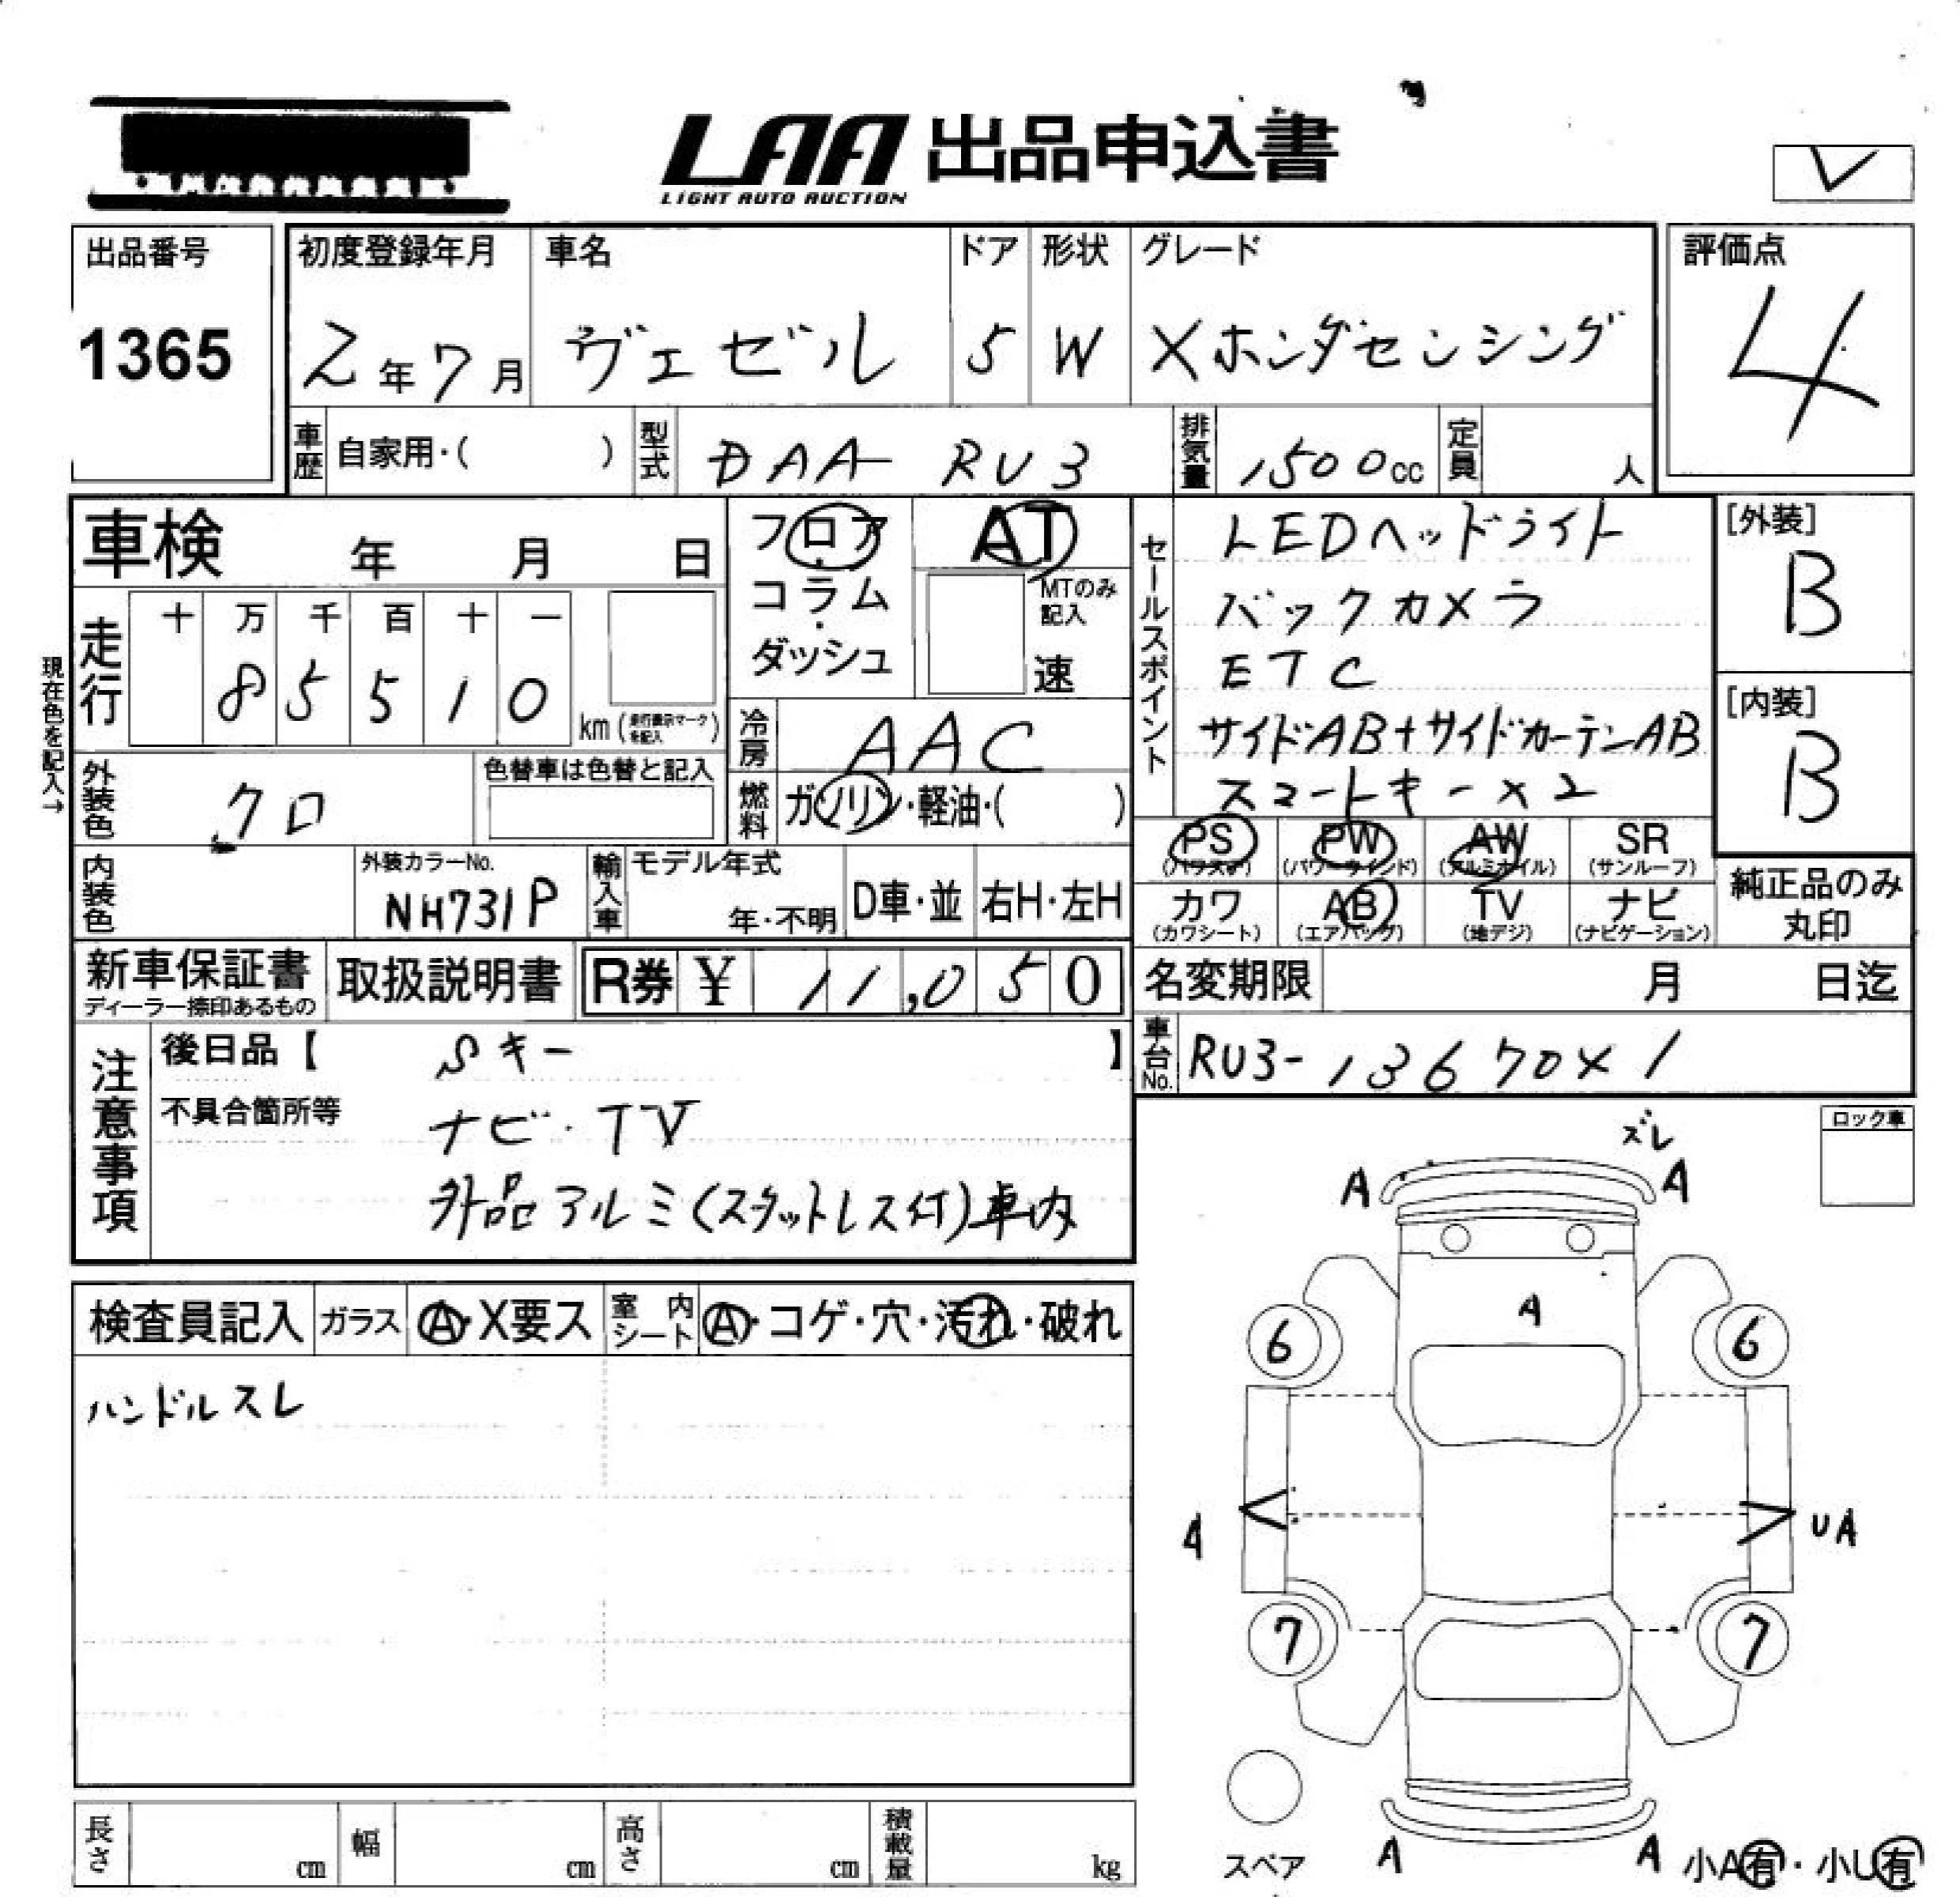 LAA 出品申込書
LIGHT AUTO AUCTION
出品番号
1365
初度登録年月
2年7月
車名
ヴェゼル
ドア
5
形状
W
グレード
Xホンダセンシング
評価点
4
車歴 自家用・( )
型式 DAA RU3
排気量 1500cc
定員 人
車検 年 月 日
走行
十 万 千 百 十 一
8 5 5 1 0
km(走行表示マークを記入)
現在色を記入→
フロア・コラム・ダッシュ
AT
MTのみ記入
速
冷房 AAC
燃料 ガソリン・軽油・( )
外装色 クロ
色替車は色替と記入
内装色
外装カラーNo.
NH731P
輸入車 モデル年式
年・不明
D車・並
右H・左H
セールスポイント
LEDヘッドライト
バックカメラ
ETC
サイドAB+サイドカーテンAB
スマートキー×2
[外装]
B
[内装]
B
PS (パワステ)
PW (パワーウインド)
AW (アルミホイル)
SR (サンルーフ)
カワ (カワシート)
AB (エアバッグ)
TV (地デジ)
ナビ (ナビゲーション)
純正品のみ丸印
新車保証書
ディーラー捺印あるもの
取扱説明書
R券 ¥ 11,050
名変期限 月 日迄
車台No. RU3-13670×1
注意事項
後日品【 Sキー 】
不具合箇所等
ナビ・TV
外品アルミ(スタットレス付)車内
検査員記入
ガラス A・X要ス
室内シート A・コゲ・穴・汚れ・破れ
ハンドルスレ
ロック車
ズレ
A A
A
6 6
A UA
7 7
スペア
A A
小A有・小U有
長さ cm
幅 cm
高さ cm
積載量 kg